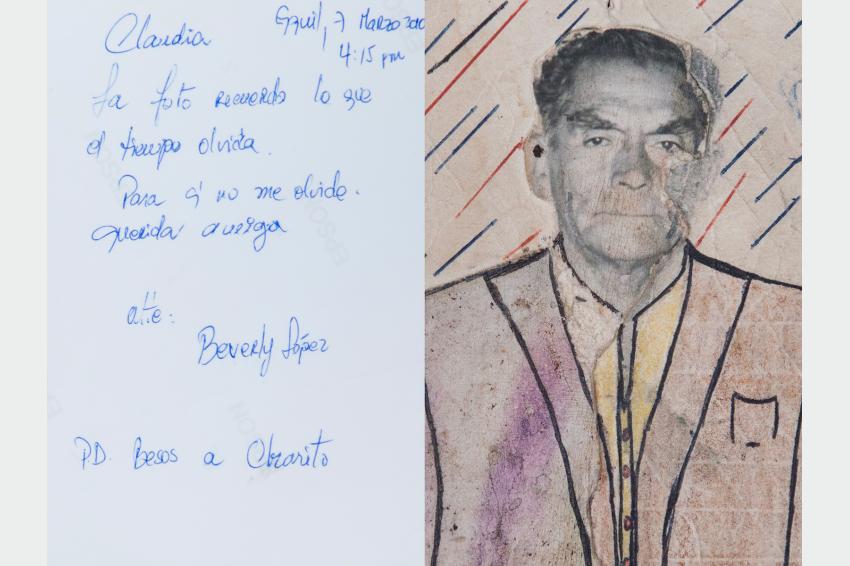 Claudia
Gquil, 7 Marzo 2010
4:15 pm
La foto recuerda lo que
el tiempo olvida.
Para q' no me olvide.
querida amiga
atte:
Beverly López
PD. Besos a
EPSON